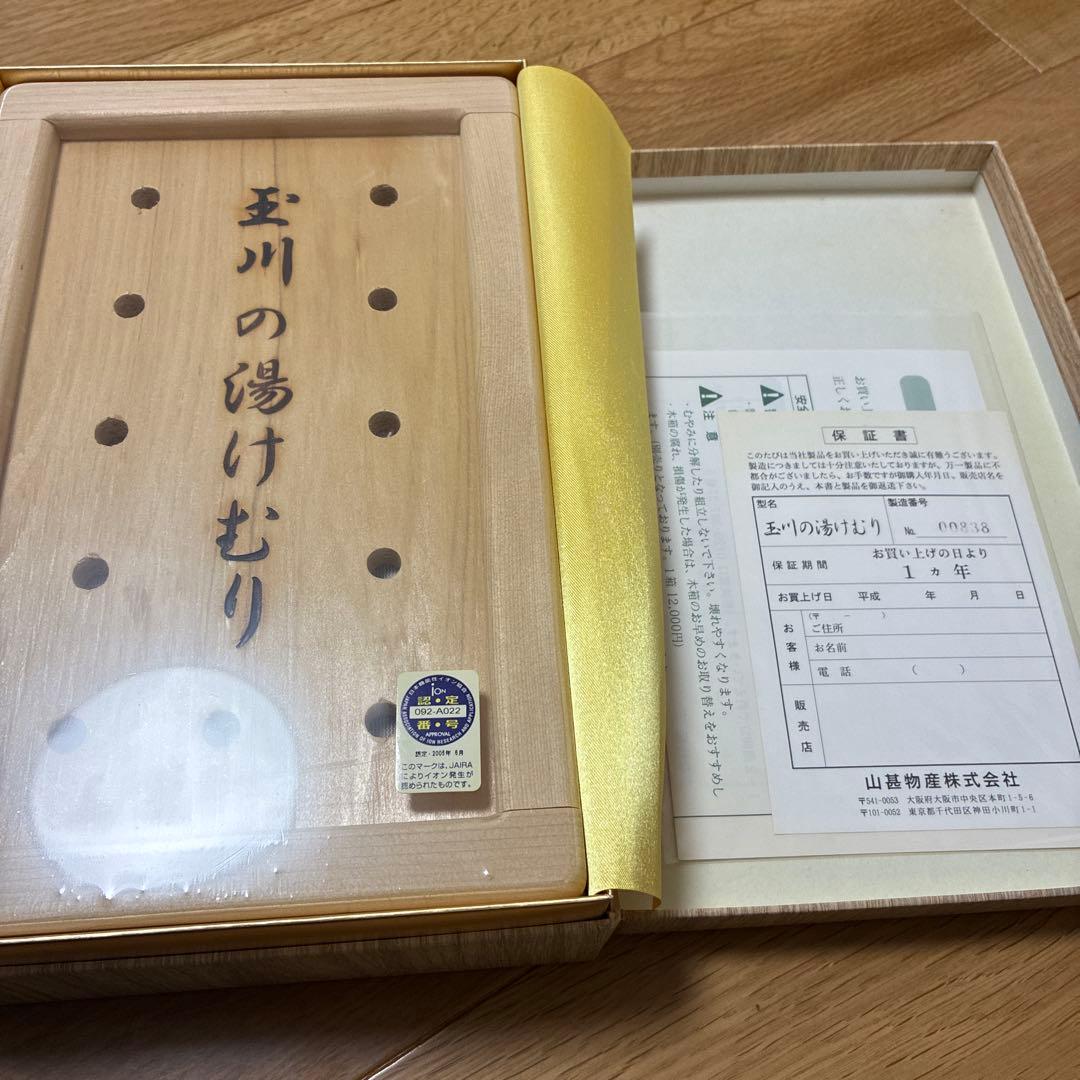 玉川の湯けむり
日本機能性イオン協会
ION
認・定
092-A022
番・号
APPROVAL
JAPAN ASSOCIATION OF ION RESEARCH AND APPLICATION
認定・2005年 6月
このマークは、JAIRA
によりイオン発生が
認められたものです。
お買い上
正しくお
安全
注意
・むやみに分解したり組立しないで下さい。壊れやすくなります。
・木箱の腐れ、損傷が発生した場合は、木箱のお早めのお取り替えをおすすめし
ます。(別売りとなっております。1箱 12,000円)
保証書
このたびは当社製品をお買い上げいただき誠に有難うございます。
製造につきましては十分注意いたしておりますが、万一製品に不
都合がございましたら、お手数ですが御購入年月日、販売店名を
御記入のうえ、本書と製品を御返送下さい。
型名 製造番号
玉川の湯けむり № 00838
保証期間 お買い上げの日より
1ヵ年
お買上げ日 平成 年 月 日
お客様
(〒 － )
ご住所
お名前
電話 ( )
販売店
山甚物産株式会社
〒541-0053 大阪府大阪市中央区本町1-5-6
〒101-0052 東京都千代田区神田小川町1-1